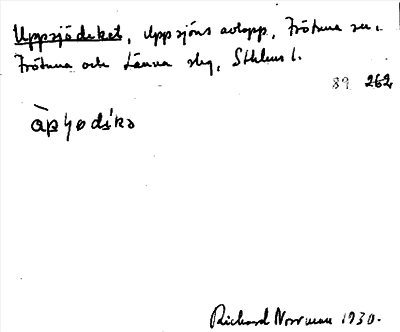 Uppsjödiket, Uppsjöns avlopp, Frötuna sn,
Frötuna och Länna slg, Sthlms l.
89 262
Richard Norrman 1930.